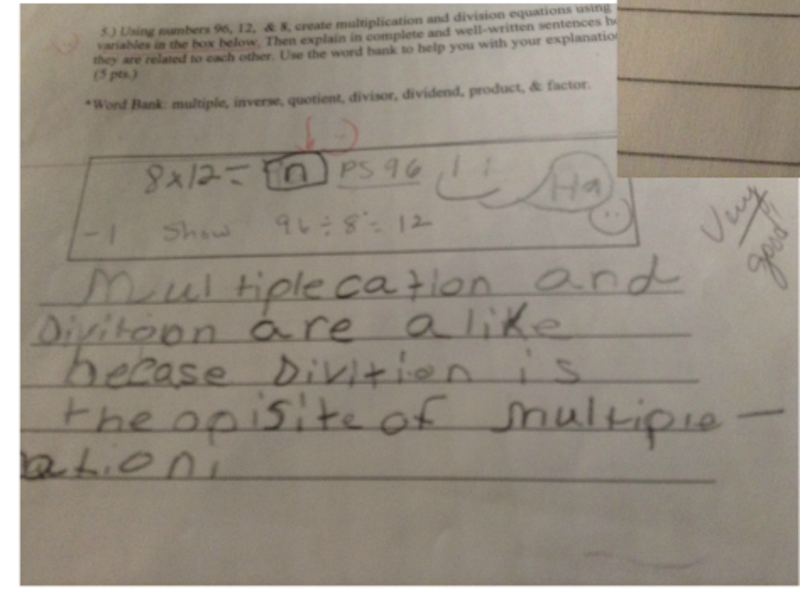 5.) Using numbers 96, 12, & 8, create multiplication and division equations using
variables in the box below. Then explain in complete and well-written sentences
they are related to each other. Use the word bank to help you with your
(5 pts.)
*Word Bank: multiple, inverse, quotient, divisor, dividend, product, & factor.
8x12= n PS 96 Ha
-1 Show 96÷8=12
Very
good
Multiplecation and
Divitoon are alike
becase Divition is
the opisite of multiple-
ation